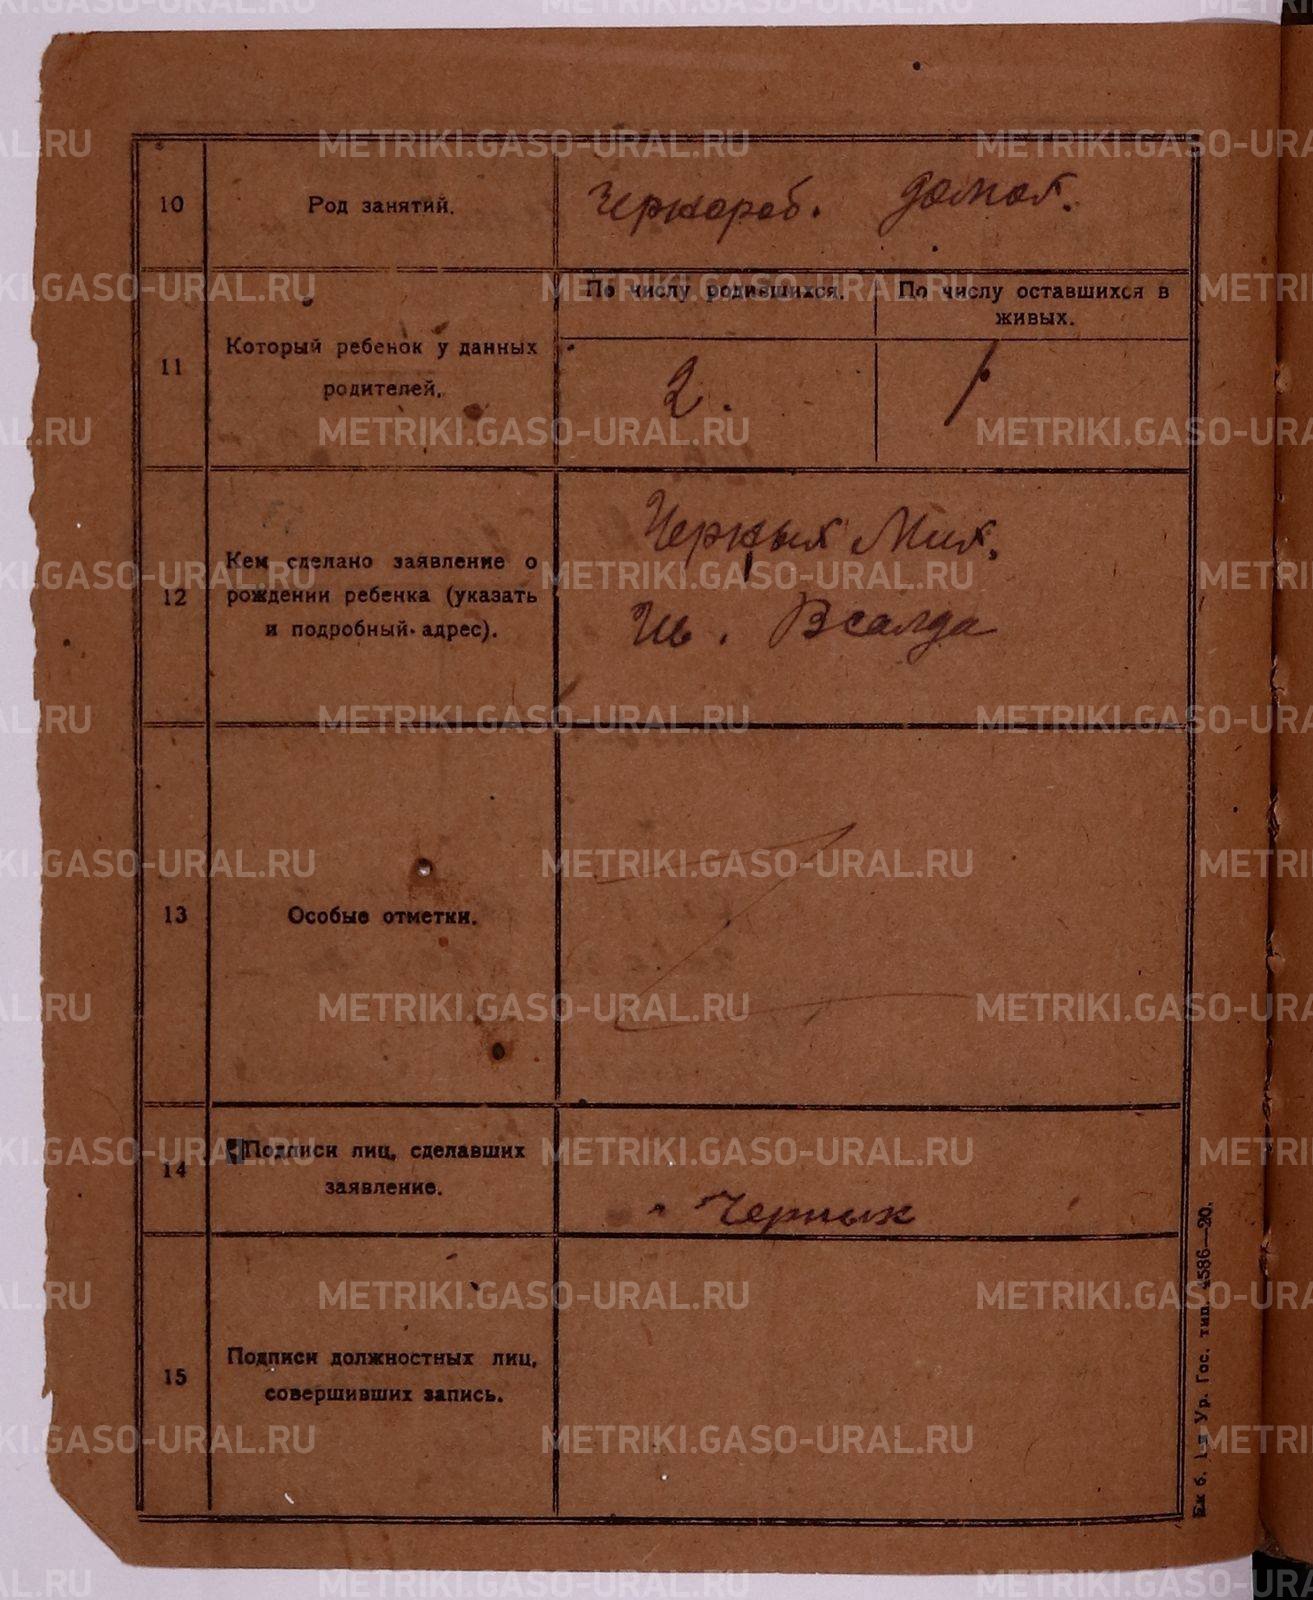 10
Род занятий.
Чернораб. домох.
11
Который ребенок у данных
родителей.
По числу родившихся.
По числу оставшихся в
живых.
2.
1
12
Кем сделано заявление о
рождении ребенка (указать
и подробный адрес).
Черных Мих.
В салда
13
Особые отметки.
14
Подписи лиц, сделавших
заявление.
Черных
15
Подписи должностных лиц,
совершивших запись.
Ек б. 1-я Ур. Гос. тип. 4586—20.
METRIKI.GASO-URAL.RU